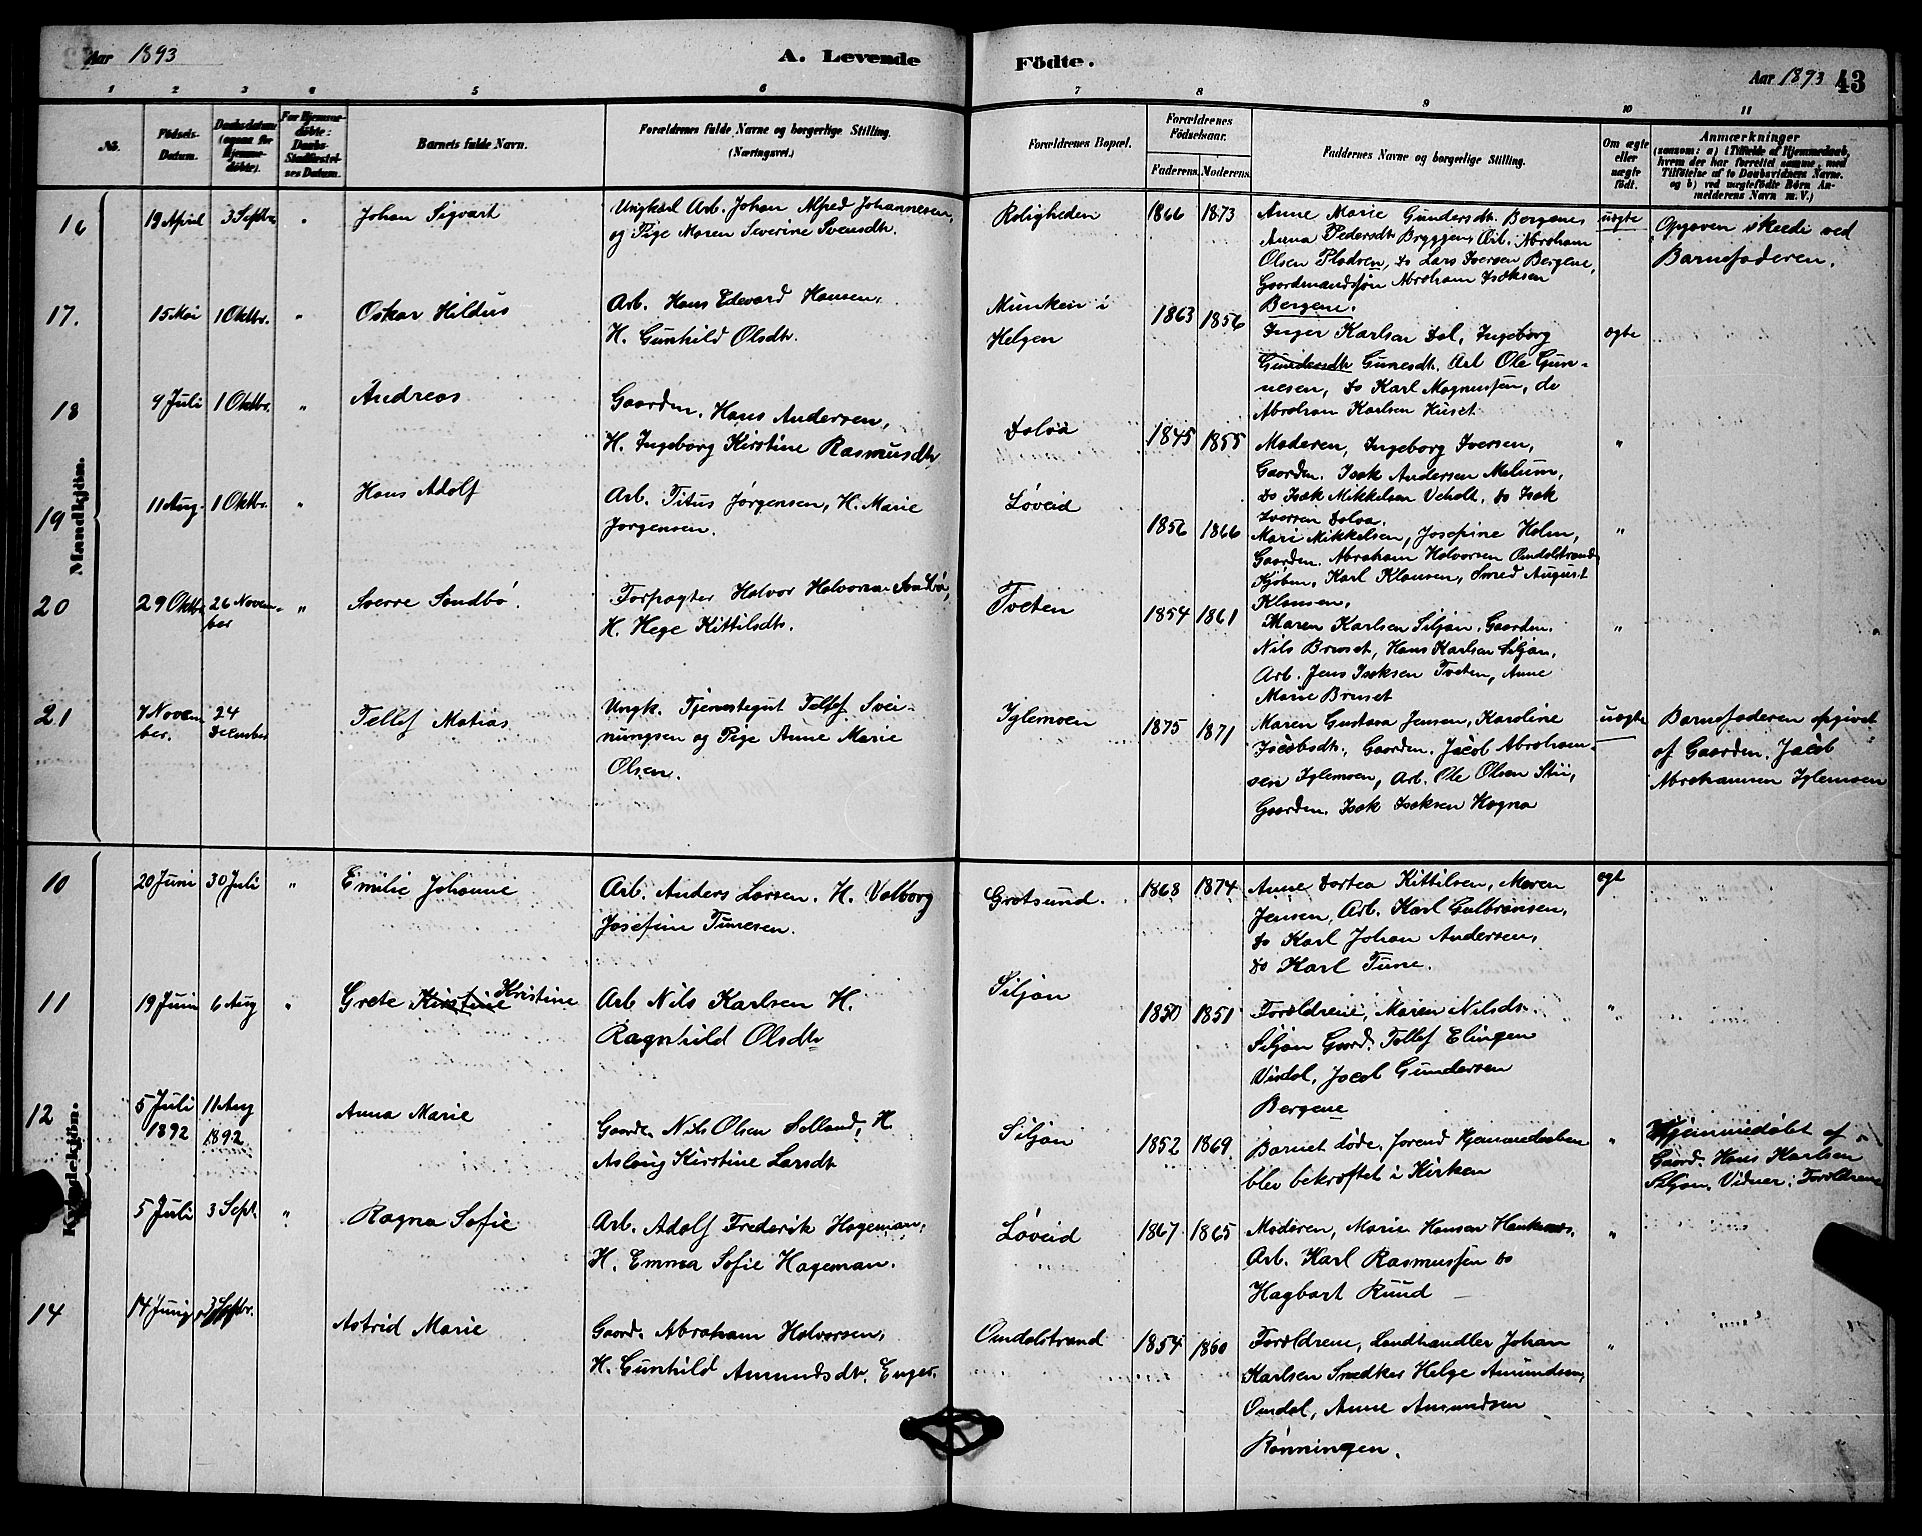 Aar 1893
A. Levende
Födte.
Aar 1893
43
1 2 3 4 5 6 7 8 9 10 11
No.
Födsels-
Datum.
Daabsdatum
(ogsaa for
Hjemme-
döbte).
For Hjemme-
döbte:
Daabs-
Stadfæstel-
ses Datum.
Barnets fulde Navn.
Forældrenes fulde Navne og borgerlige Stilling.
(Næringsvei.)
Forældrenes Bopæl.
Forældrenes
Födselsaar.
Faderens. Moderens.
Faddernes Navne og borgerlige Stilling.
Om ægte
eller
uægte
födt.
Anmærkninger
(saasom: a) i Tilfælde af Hjemmedaab,
hvem der har forrettet samme, med
Tilföielse af to Daabsvidners Navne.
og b) ved uægtefödte Börn An-
melderens Navn m. V.)
Mandkjön.
16 19 April 3 Septbr " Johan Sigvart
Ungkarl Arb. Johan Alfred Johannesen,
og Pige Maren Severine Svensdtr.
Roligheden 1866 1873
Anne Marie Gundersdtr. Bergenes
Anna Pedersdtr Bryggen, Arb. Abraham
Olsen Pladsen, do Lars Iversen Bergene,
Gaardmandssön Abraham Isaksen
Bergene.
uægte
Opgaven skeedi ved
Barnefaderen.
17. 15 Mai 1 Oktbr. " Oskar Hildus
Arb. Hans Edevard Hansen,
H. Gunhild Olsdtr.
Munken i
Helgen
1863 1856
Inger Karlsen Dal, Ingeborg
Gundersdtr Gunesdtr. Arb Ole Gun-
nesen, do Karl Magnussen, do
Abraham Karlsen Huset
ægte
18 9 Juli 1 Oktbr. " Andreas
Gaardm. Hans Andersen,
H. Ingeborg Kirstine Rasmusdtr
Dolva 1845 1855
Moderen, Ingeborg Iversen,
Gaardm. Isak Andersen Melum,
do Isak Mikkelsen Veholt, do Isak
Iversen Dolva.
"
19 11 Aug. 1 Oktbr. " Hans Adolf
Arb. Titus Jørgensen, H. Marie
Jørgensen.
Løveid 1856 1866
Mari Mikkelsen, Josefine Holm,
Gaardm. Abraham Halvorsen Omdalstrand
Kjöbm. Karl Klausen, Smed August
Klausen,
"
20 29 Oktbr 26 Novem-
ber " Sverre Sandbö.
Forpagter Halvor Halvorsen Sandbö,
H. Hege Kittilsdtr.
Tveten 1854 1861
Maren Karlsen Siljan, Gaardm.
Nils Bruset, Hans Karlsen Siljan,
Arb. Jens Isaksen Tveten, Anne
Marie Bruset
"
21 7 Novem
ber. 24
Desember
Tellef Matias
Ungk. Tjenestegut Tellef Svei-
nungsen og Pige Anne Marie
Olsen.
Iglemoen 1875 1871
Maren Gustava Jensen, Karoline
Jacobsdtr. Gaardm. Jacob Abraham-
sen Iglemoen, Arb. Ole Olsen Stii,
Gaardm. Isak Isaksen Hogna
uægte
Barnefaderen opgivet
af Gaardm. Jacob
Abrahamsen Iglemoen
Kvindekjön.
10 20 Juni 30 Juli " Emilie Johanne
Arb. Anders Larsen. H. Valborg
Josefine Tunesen.
Grotsund. 1868 1874
Anne Dortea Kittilsen, Maren
Jensen, Arb. Karl Gulbransen,
do Karl Johan Andersen,
do Karl Tune.
egt
11 19 Juni 6 Aug " Grete Kirstine Kristine
Arb Nils Karlsen H.
Ragnhild Olsdtr
Siljan 1850 1851
Forældrene, Maren Nilsdtr.
Siljan Gaard. Tellef Elingsen
Visdal, Jacob Gundersen
Bergene
"
12 5 Juli
1892 11 Aug
1892 Anna Marie
Gaardm. Nils Olsen Solland, H.
Aslaug Kirstine Larsdtr
Siljan 1852 1869
Barnet døde, forend Hjemmedaaben
blev bekræftet i Kirken
"
Hjemmedøbt af
Gaard. Hans Karlsen
Siljan. Vidner: Forældrene
5 Juli 3 Sept. " Ragna Sofie
Arb. Adolf Frederik Hageman,
H. Emma Sofie Hageman.
Løveid 1867 1865
Moderen, Marie Hansen
Arb. Karl Rasmussen do
Hagbart Ruud
"
14 14 Juni 3 Septbr. Astrid Marie
Gaard. Abraham Halvorsen,
H. Gunhild Amundsdtr. Enger.
Omdalstrand 1854 1860
Forældrene, Landhandler Johan
Karlsen Helge Amundsen,
Omdal, Anne Amundsen
Rønningen.
"